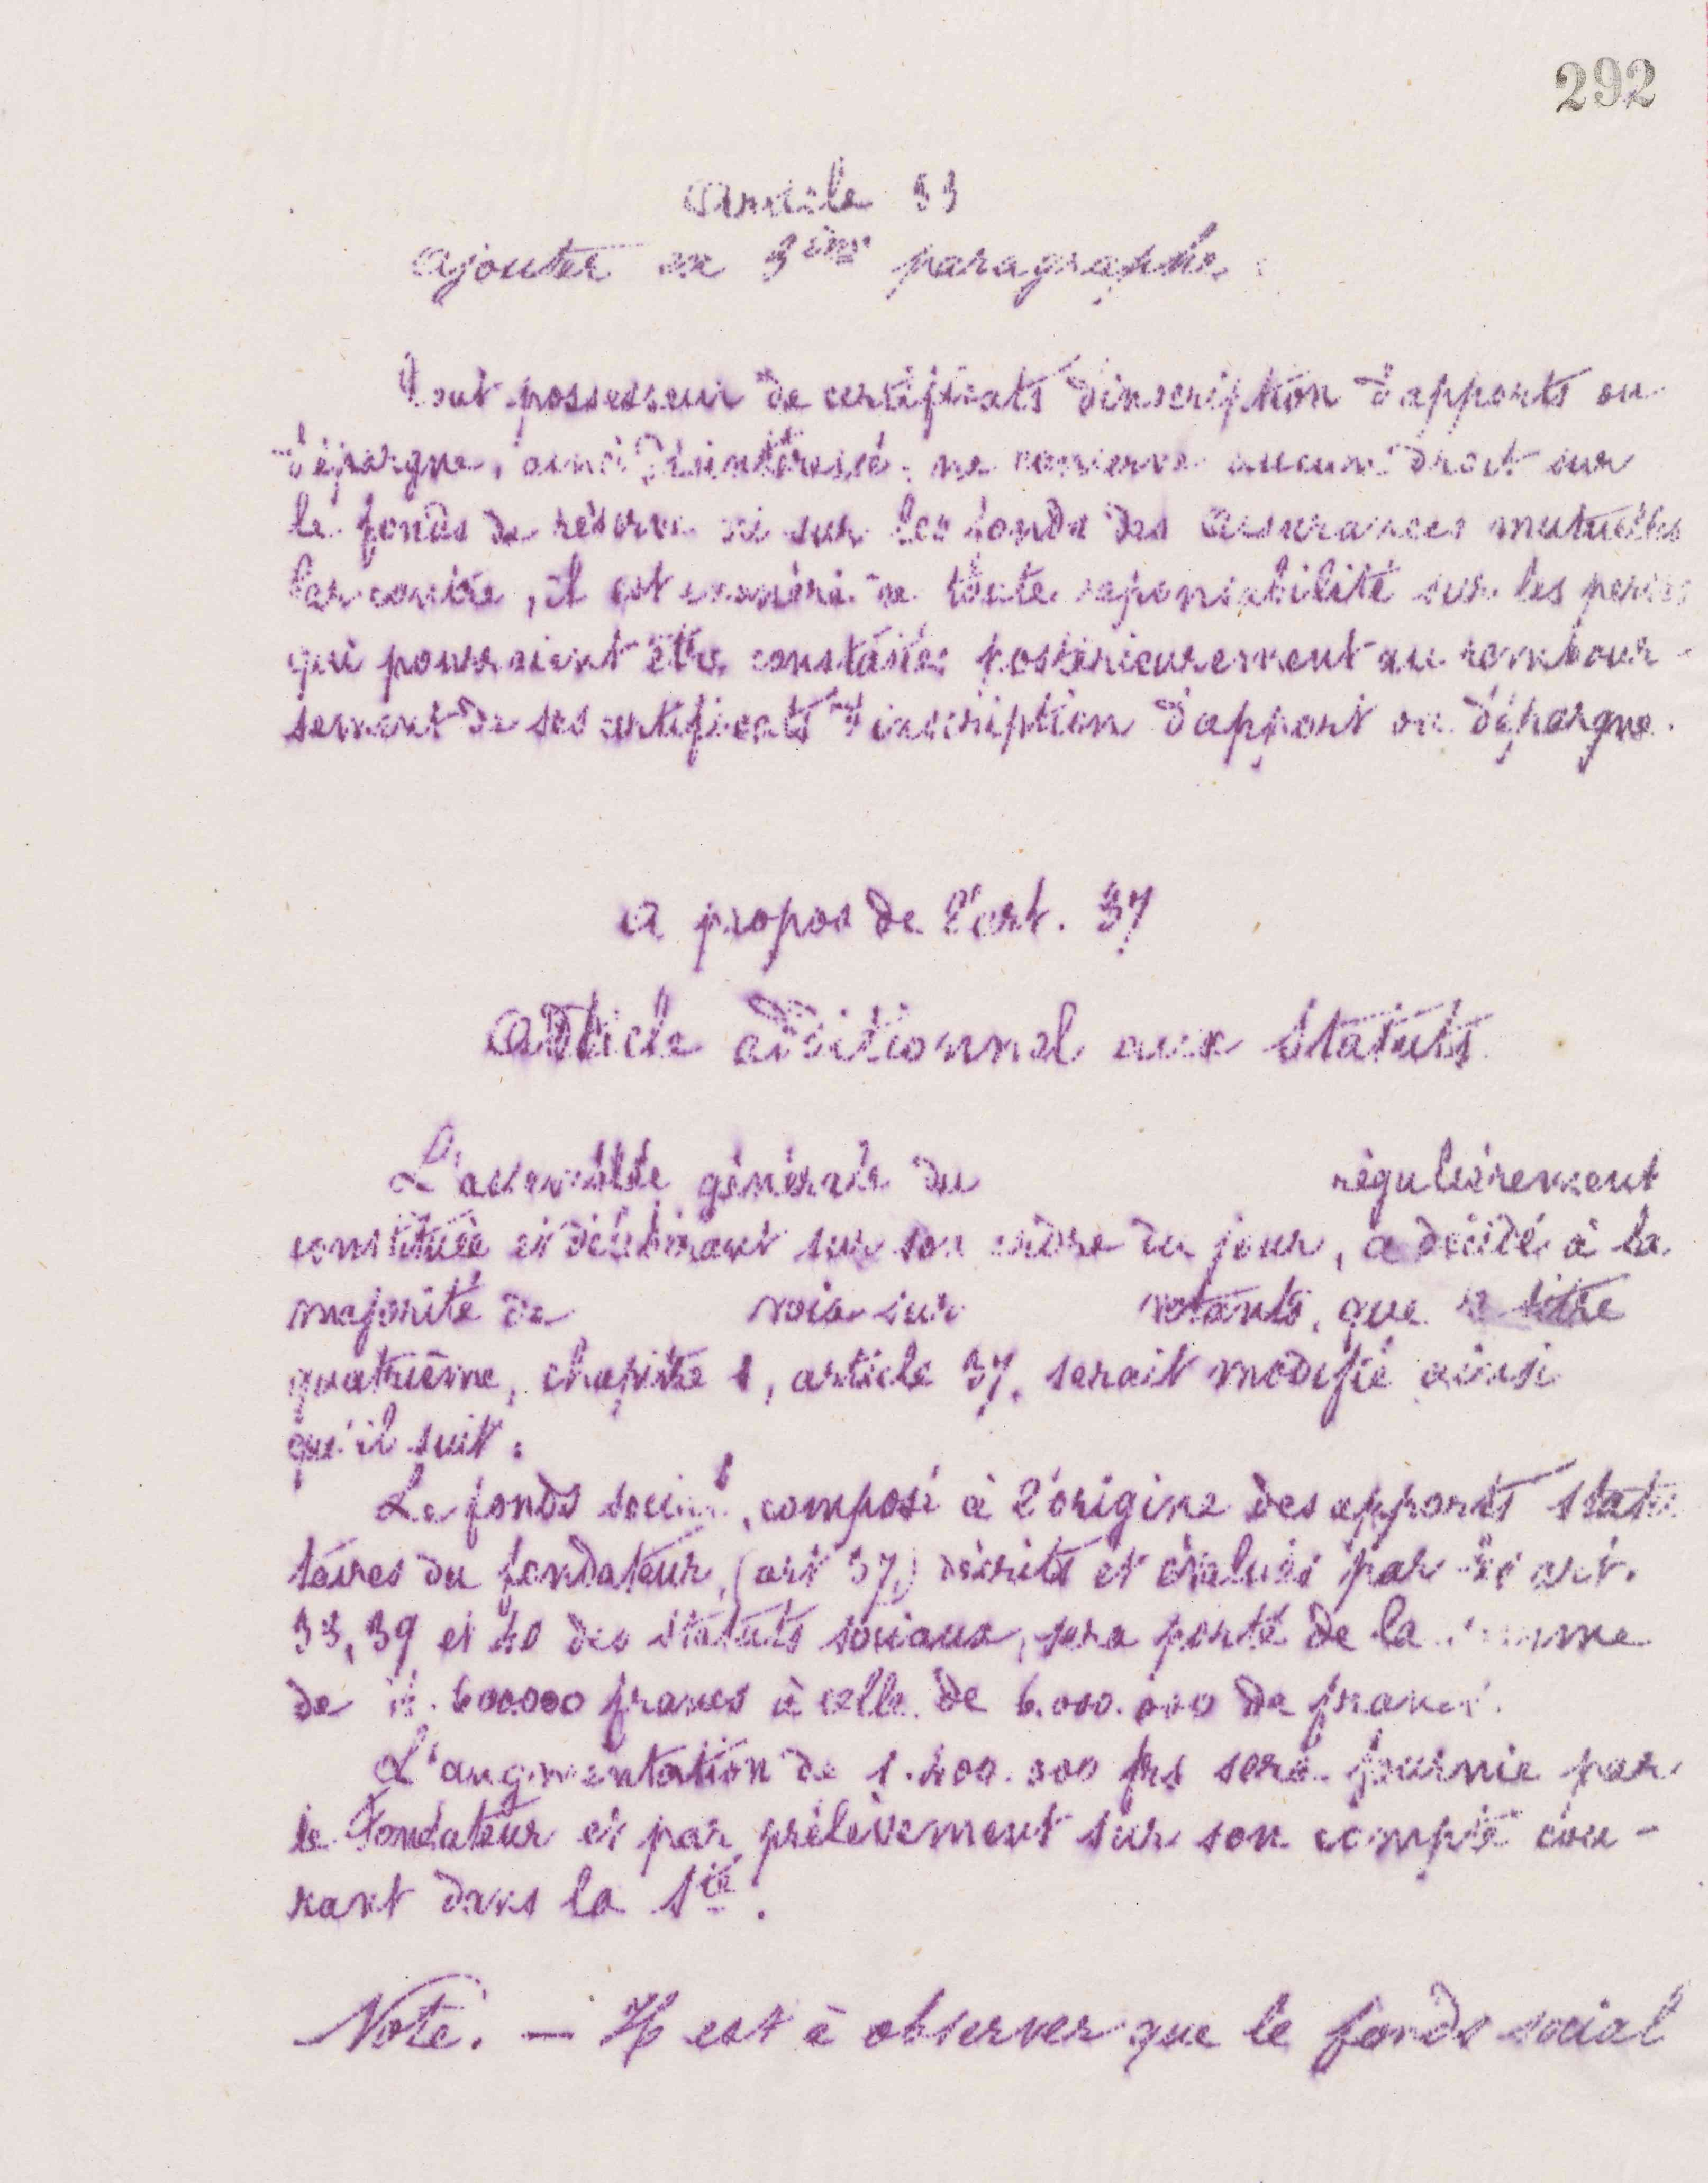 292
Article 33
Ajouter un 3ème paragraphe :
Tout possesseur de certificats d'inscription d'apports ou
d'épargne, ainsi désintéressé, ne conserve aucun droit sur
le fonds de réserve ni sur les fonds des Assurances mutuelles
Par contre, il est exonéré de toute reponsabilité sur les pertes
qui pourraient être constatées postérieurement au rembour-
sement de ses certificats d'inscription d'apport ou d'épargne.
A propos de l'art. 37
Article additionnel aux Statuts
L'assemblée générale du régulièrement
constituée et délibérant sur son ordre du jour, a décidé à la
majorité de voix sur votants, que le titre
quatrième, chapitre 1, article 37, serait modifié ainsi
qu'il suit :
Le fonds social, composé à l'origine des apports statu
taires du fondateur, (art 37,) décrits et évalués par les art.
38, 39 et 40 des Statuts sociaux, sera porté de la somme
de 4.600.000 francs à celle de 6.000.000 de francs.
L'augmentation de 1.400.000 frs sera fournie par
le Fondateur et par prélèvement sur son compte cou-
rant dans la Sté.
Note. — Il est à observer que le fonds social